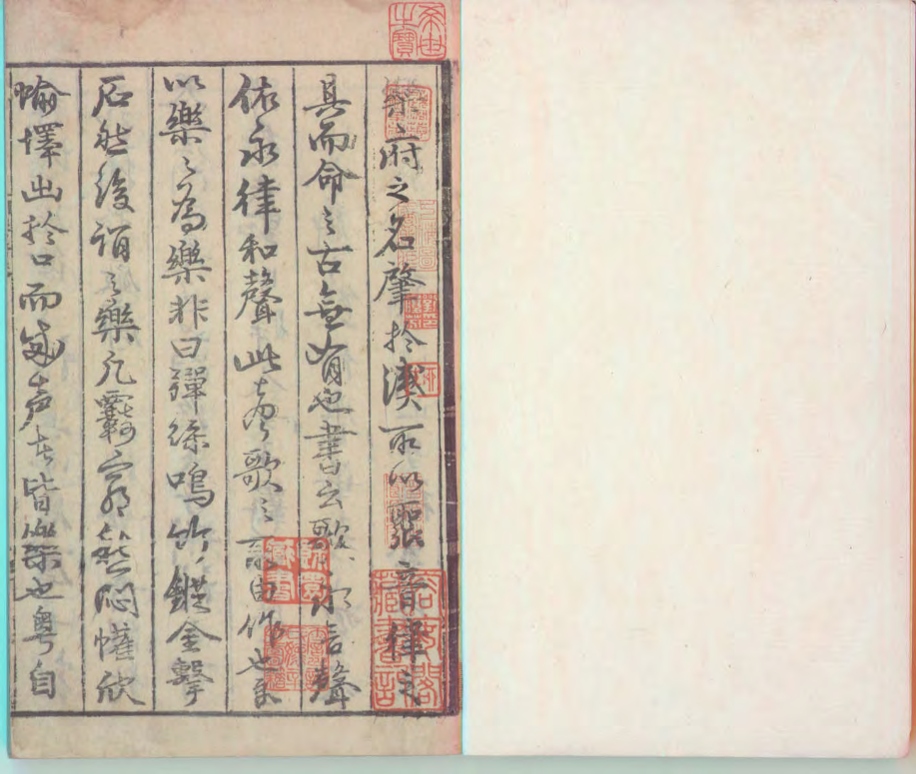 希世之寶
樂府之名肇於漢所以聚音律之
具而命之古無有也書云歌永言聲
依永律和聲此歌之所由作也
以樂之為樂非曰彈絲鳴竹鏦金擊
石然後謂之樂凡羈窮愁悶懽欣
愉懌出於口而成声者皆樂也粤自